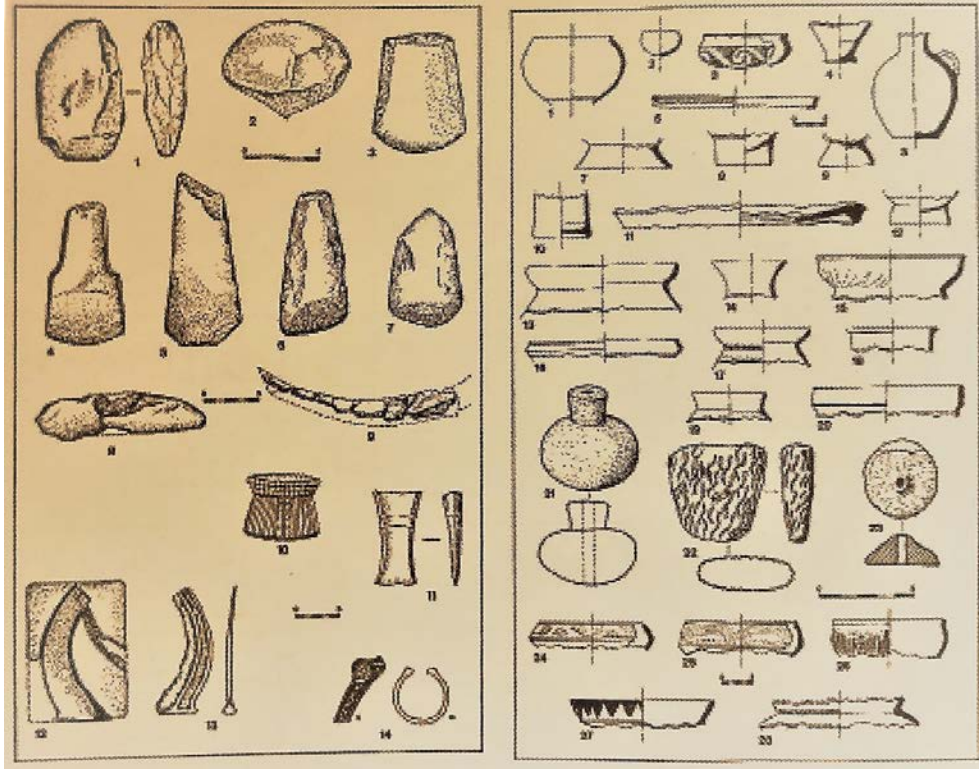 1
2
3
4
5
6
7
8
9
10
11
12
13
14
1
2
3
4
6
5
7
8
9
10
11
12
13
14
15
16
17
18
19
20
21
22
23
24
25
26
27
28